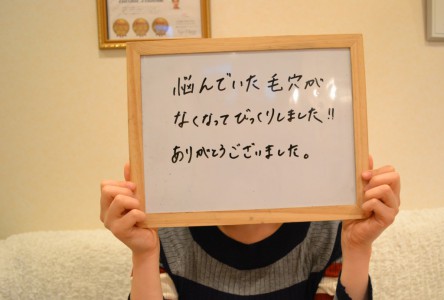 悩んでいた毛穴が
なくなってびっくりしました!!
ありがとうございました。